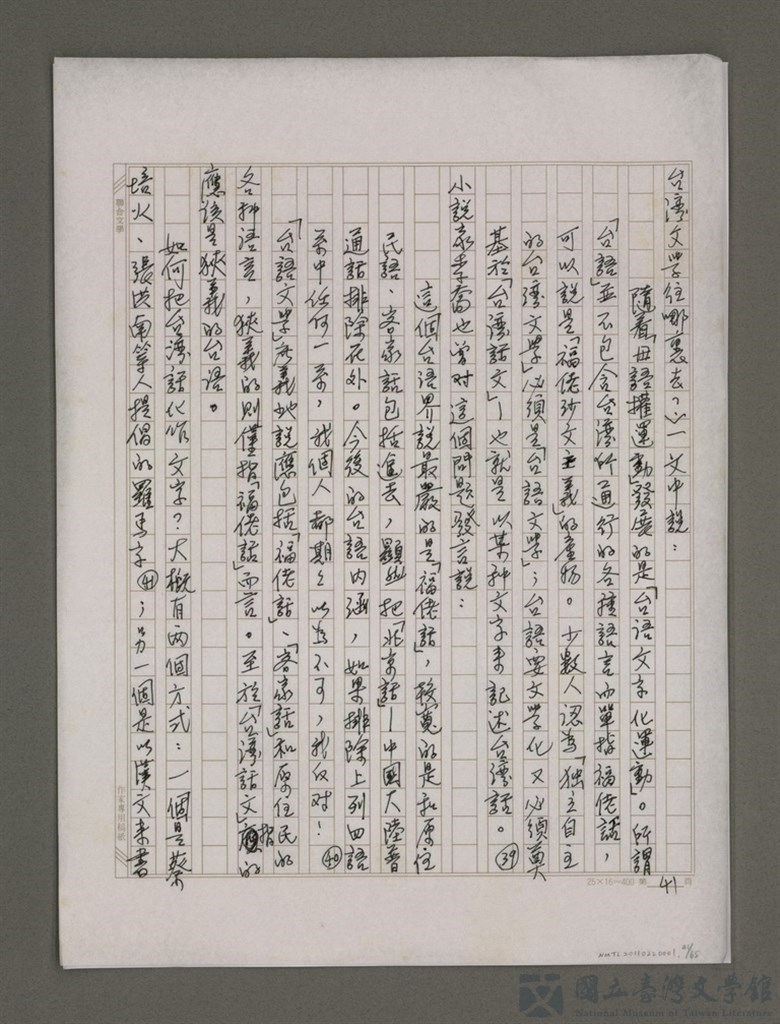 台灣文學往哪裏去？」一文中說：
隨着「母語權運動」發展的是「台語文字化運動」。所謂
「台語」並不包含台灣所通行的各種語言而單指福佬話，
可以說是「福佬沙文主義」的產物。少數人認為「獨立自主
的台灣文學」必須是「台語文學」；台語要文學化又必須奠
基於「台灣話文」—也就是以某種文字來記述台灣話。㊴
小說家李喬也曾対這個問題發言說：
這個台語界說最嚴的是「福佬話」，較寬的是和原住
民語、客家話包括進去，顯然把「北京話」—中國大陸普
通話排除在外。今後的台語內涵，如果排除上列四語
系中任何一系，我個人都期期以為不可，我反対！㊵
「台語文學」広義地說應包括「福佬話」、「客家話」和原住民的
各种語言，狹義的則僅指「福佬話」而言。至於「台灣話文」指的
應該是狹義的台語。
如何把台灣話化作文字？大概有两個方式：一個是蔡
培火、張洪南等人提倡的羅馬字㊶；另一個是以漢文來書
聯合文學
作家專用稿紙
25×16=400 第 41 頁
國立臺灣文學館
National Museum of Taiwan Literature